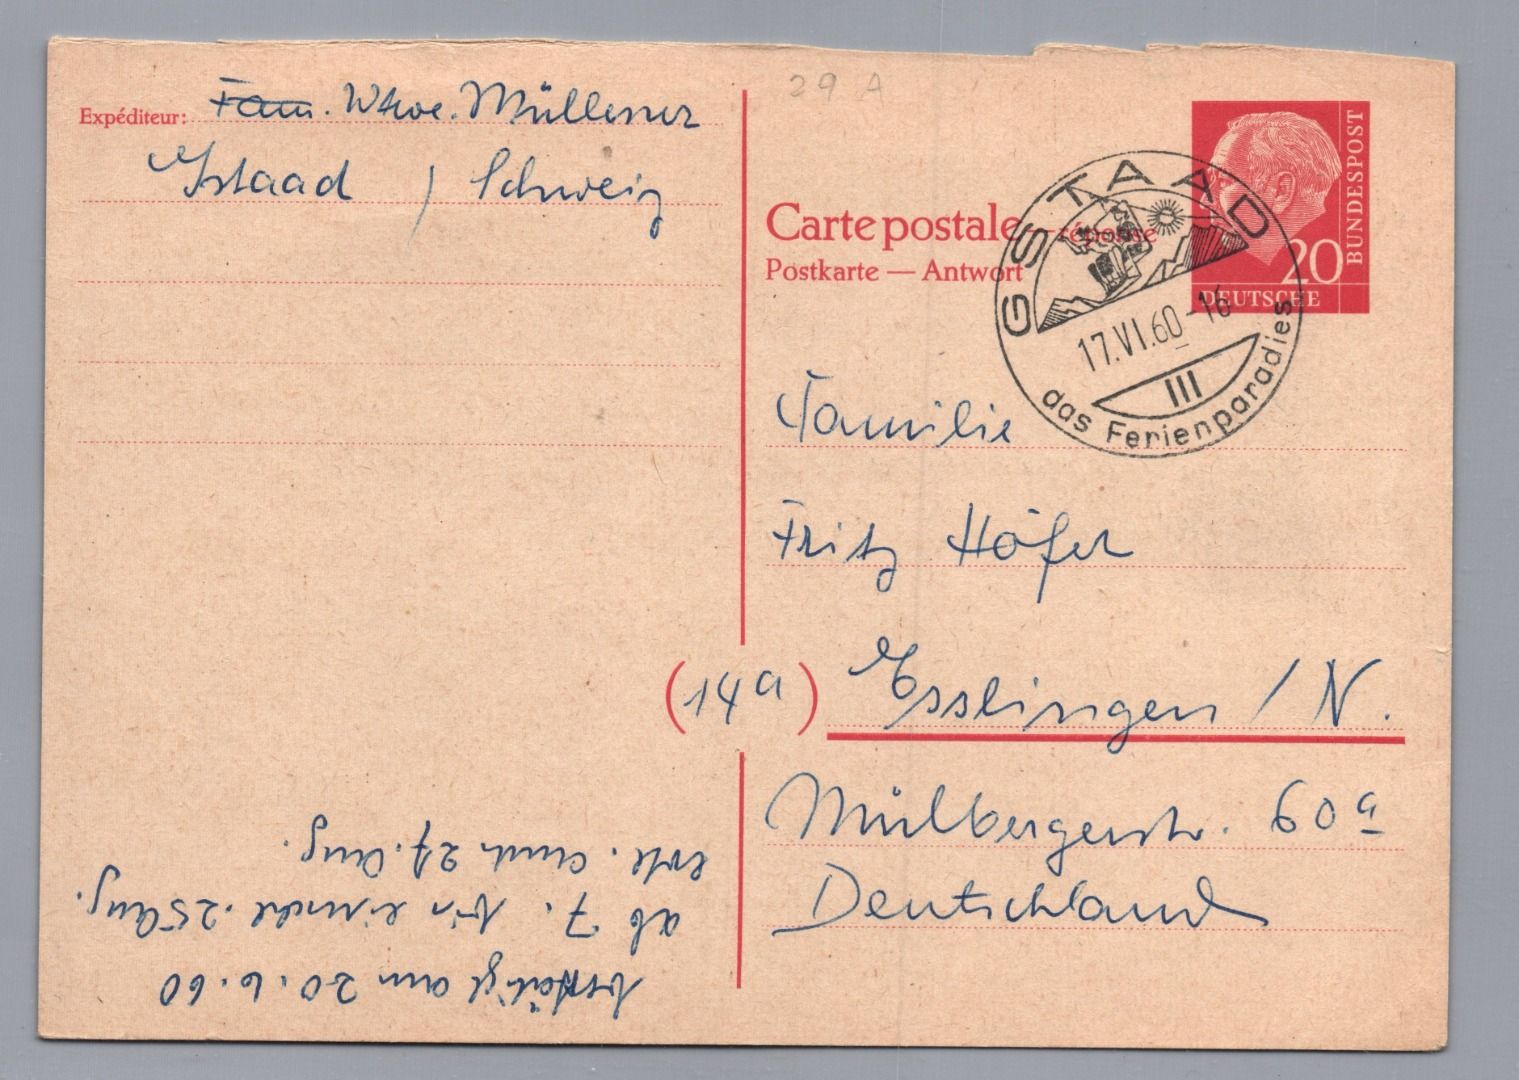 29 A
Expéditeur: Fam. Wtwe. Müllener
Gstaad / Schweiz
Carte postale — réponse
Postkarte — Antwort
20
DEUTSCHE
BUNDESPOST
GSTAAD
17.VI.60-16
III
das Ferienparadies
Familie
Fritz Höfer
(14a) Esslingen / N.
Mülbergerstr. 60a
Deutschland
bestätigt am 20.6.60
ab 7. bis einschl. 25 Aug.
evtl. auch 27. Aug.